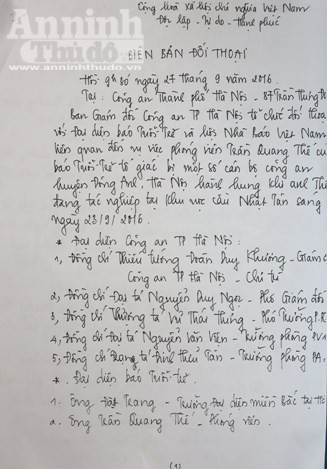 Cộng hoà xã hội chủ nghĩa Việt Nam
Độc lập - Tự do - Hạnh phúc
An ninh
Thủ đô
www.anninhthudo.vn
BIÊN BẢN ĐỐI THOẠI
Hồi 9h30 ngày 27 tháng 9 năm 2016.
Tại: Công an Thành phố Hà Nội - 87 Trần Hưng Đạo
Ban Giám đốc Công an TP Hà Nội tổ chức đối thoại
với Đại diện báo Tuổi Trẻ và Hội Nhà Báo Việt Nam
liên quan đến vụ việc phóng viên Trần Quang Thế của
báo Tuổi Trẻ tố giác bị một số cán bộ công an
huyện Đông Anh, Hà Nội hành hung khi anh Thế
đang tác nghiệp tại khu vực cầu Nhật Tân sáng
ngày 23/9/2016.
* Đại diện Công an TP Hà Nội:
1, Đồng chí Thiếu tướng Đoàn Duy Khương - Giám đ
Công an TP Hà Nội - Chủ trì
2, Đồng chí Đại tá Nguyễn Duy Ngọc - Phó Giám đố
3, Đồng chí Thượng tá Vũ Thái Hưng - Phó Trưởng
4, Đồng chí Đại tá Nguyễn Văn Viện - Trưởng phòng PV1
5, Đồng chí tá Đinh Hữu Tân - Trưởng phòng PA
*. Đại diện báo Tuổi trẻ.
1. Ông Đặt Trang - Trưởng Đại diện miền Bắc tại Hà
2. Ông Trần Quang Thế - Phóng viên.
(1)